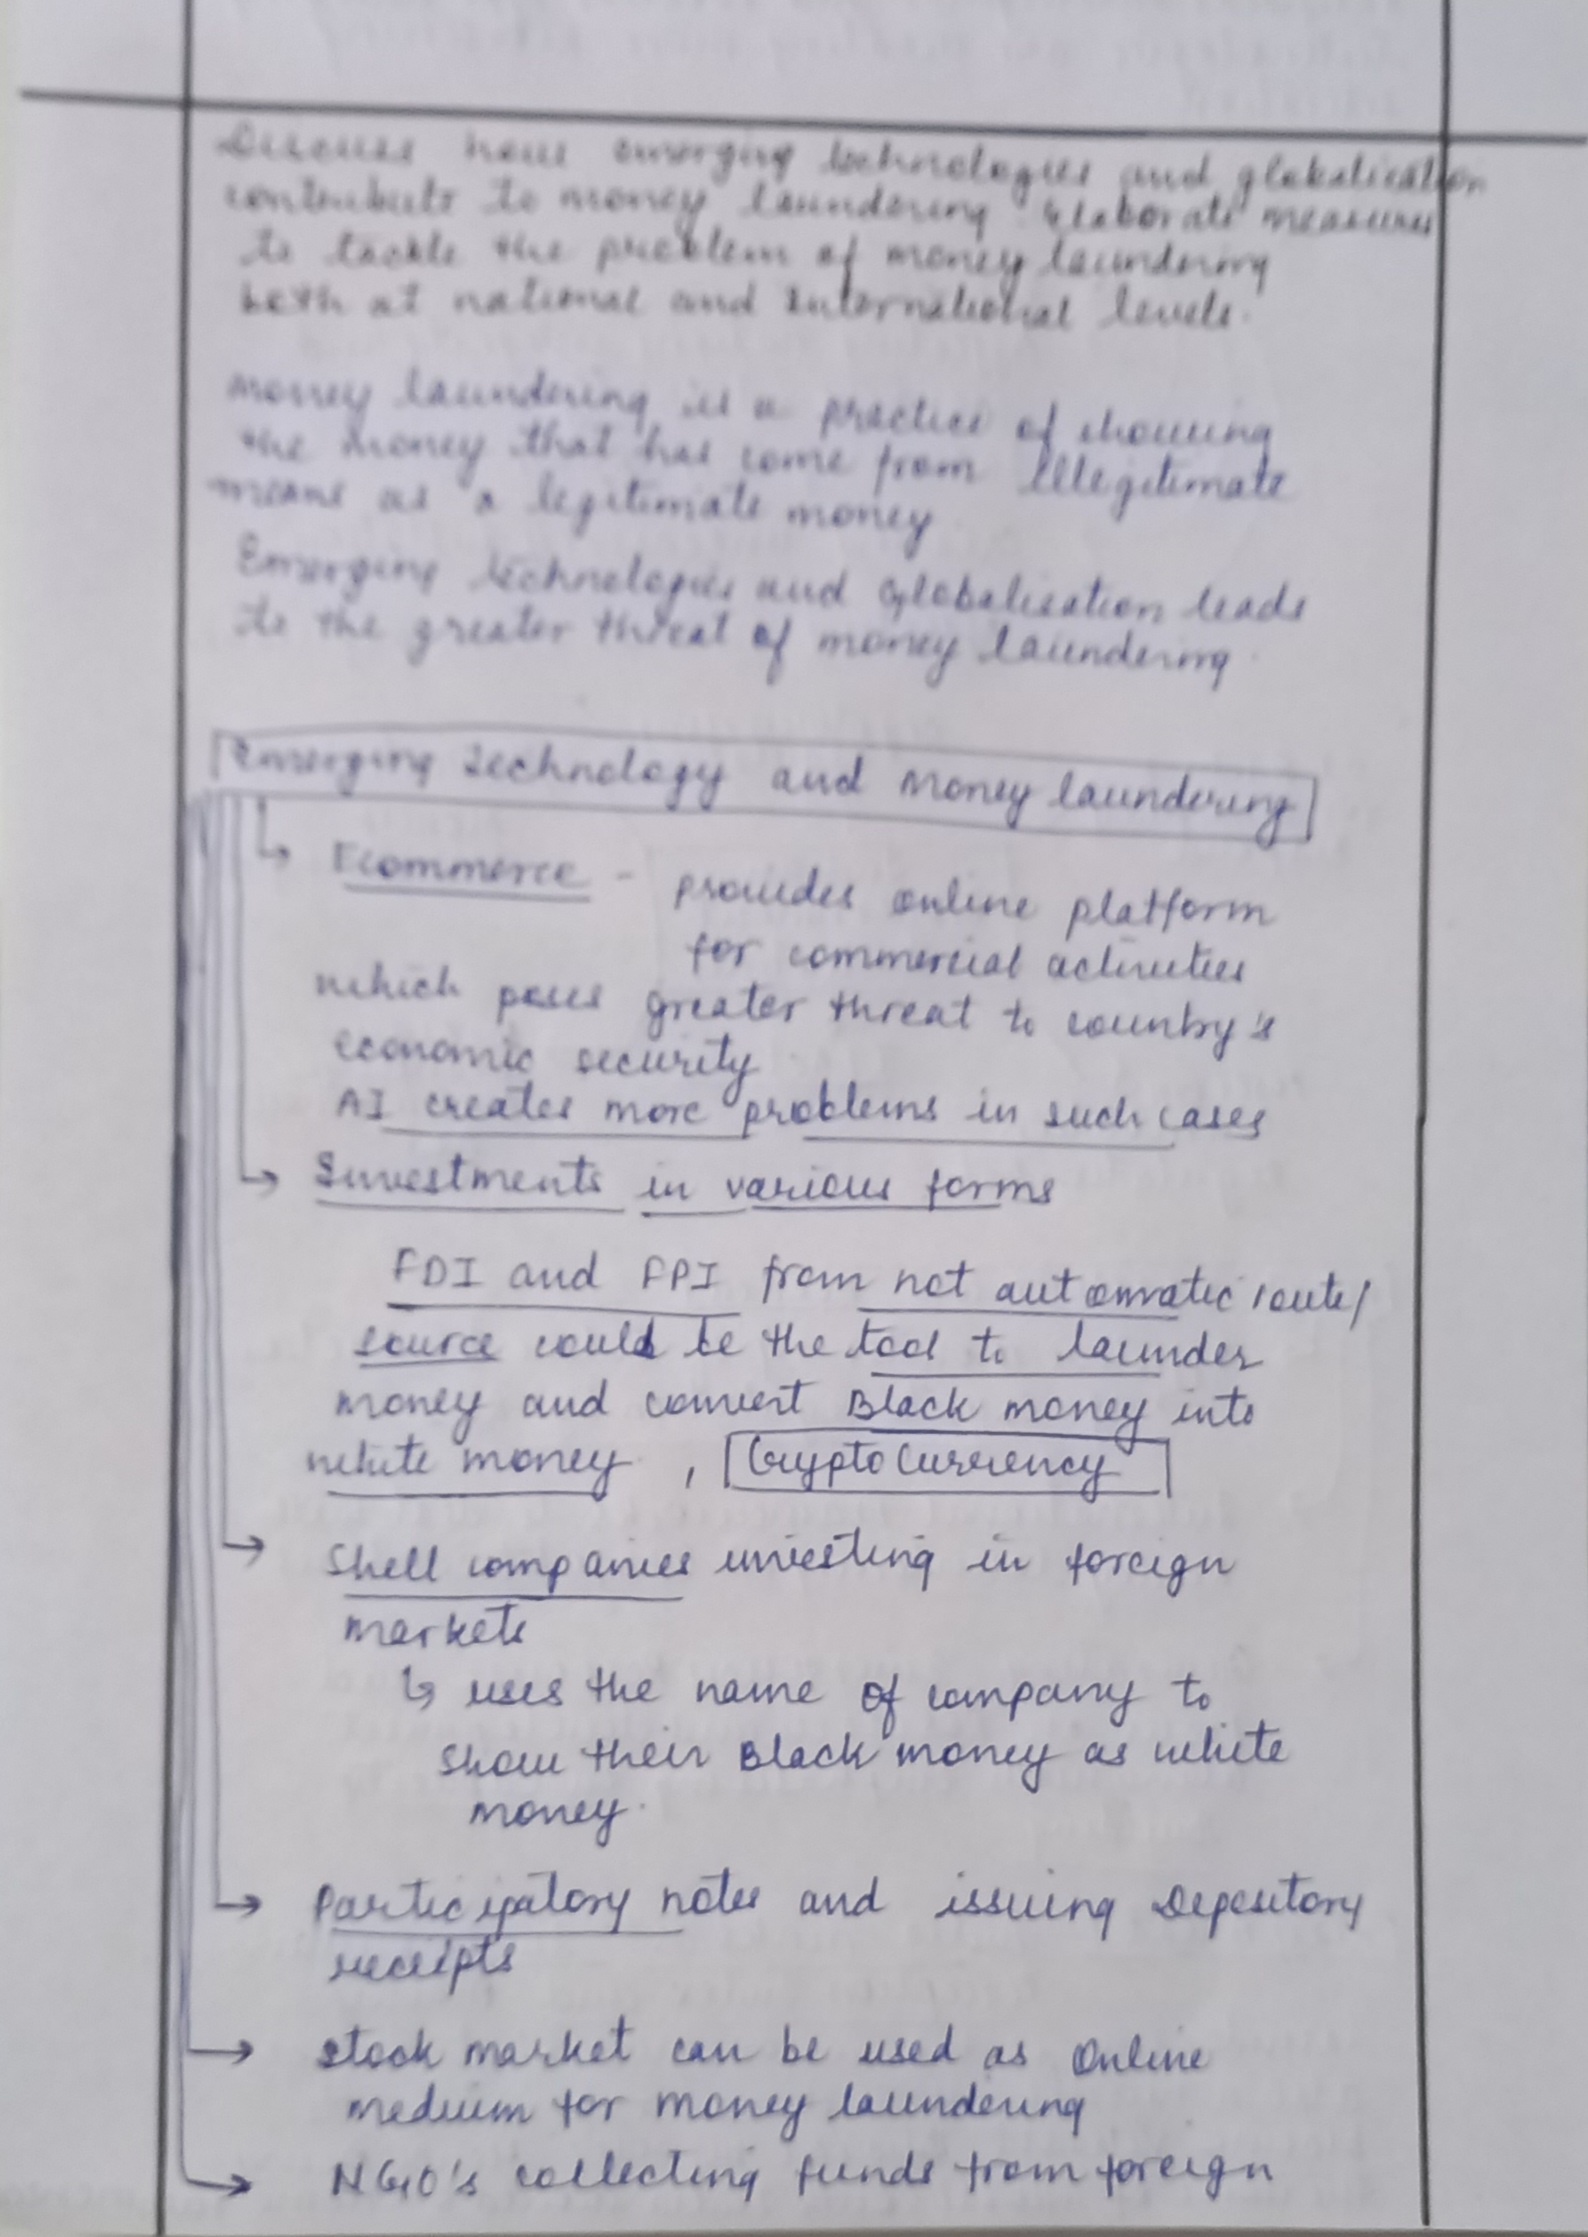 Discuss how emerging technologies and globalisation
contribute to money laundering. Elaborate measures
to tackle the problem of money laundering
both at national and international levels.
Money laundering is a practice of showing
the money that has come from illegitimate
means as a legitimate money
Emerging technologies and Globalisation leads
to the greater threat of money laundering.
Emerging Technology and Money laundering
Ecommerce - provides online platform
for commercial activities
which poses greater threat to country's
economic security
AI creates more problems in such cases
Investments in various forms
FDI and FPI from not automatic route/
source could be the tool to launder
money and convert Black money into
white money , Cryptocurrency
Shell companies investing in foreign
markets
↳ uses the name of company to
show their Black money as white
money.
Participatory notes and issuing Depository
receipts
Stock market can be used as Online
medium for money laundering
NGO's collecting funds from foreign